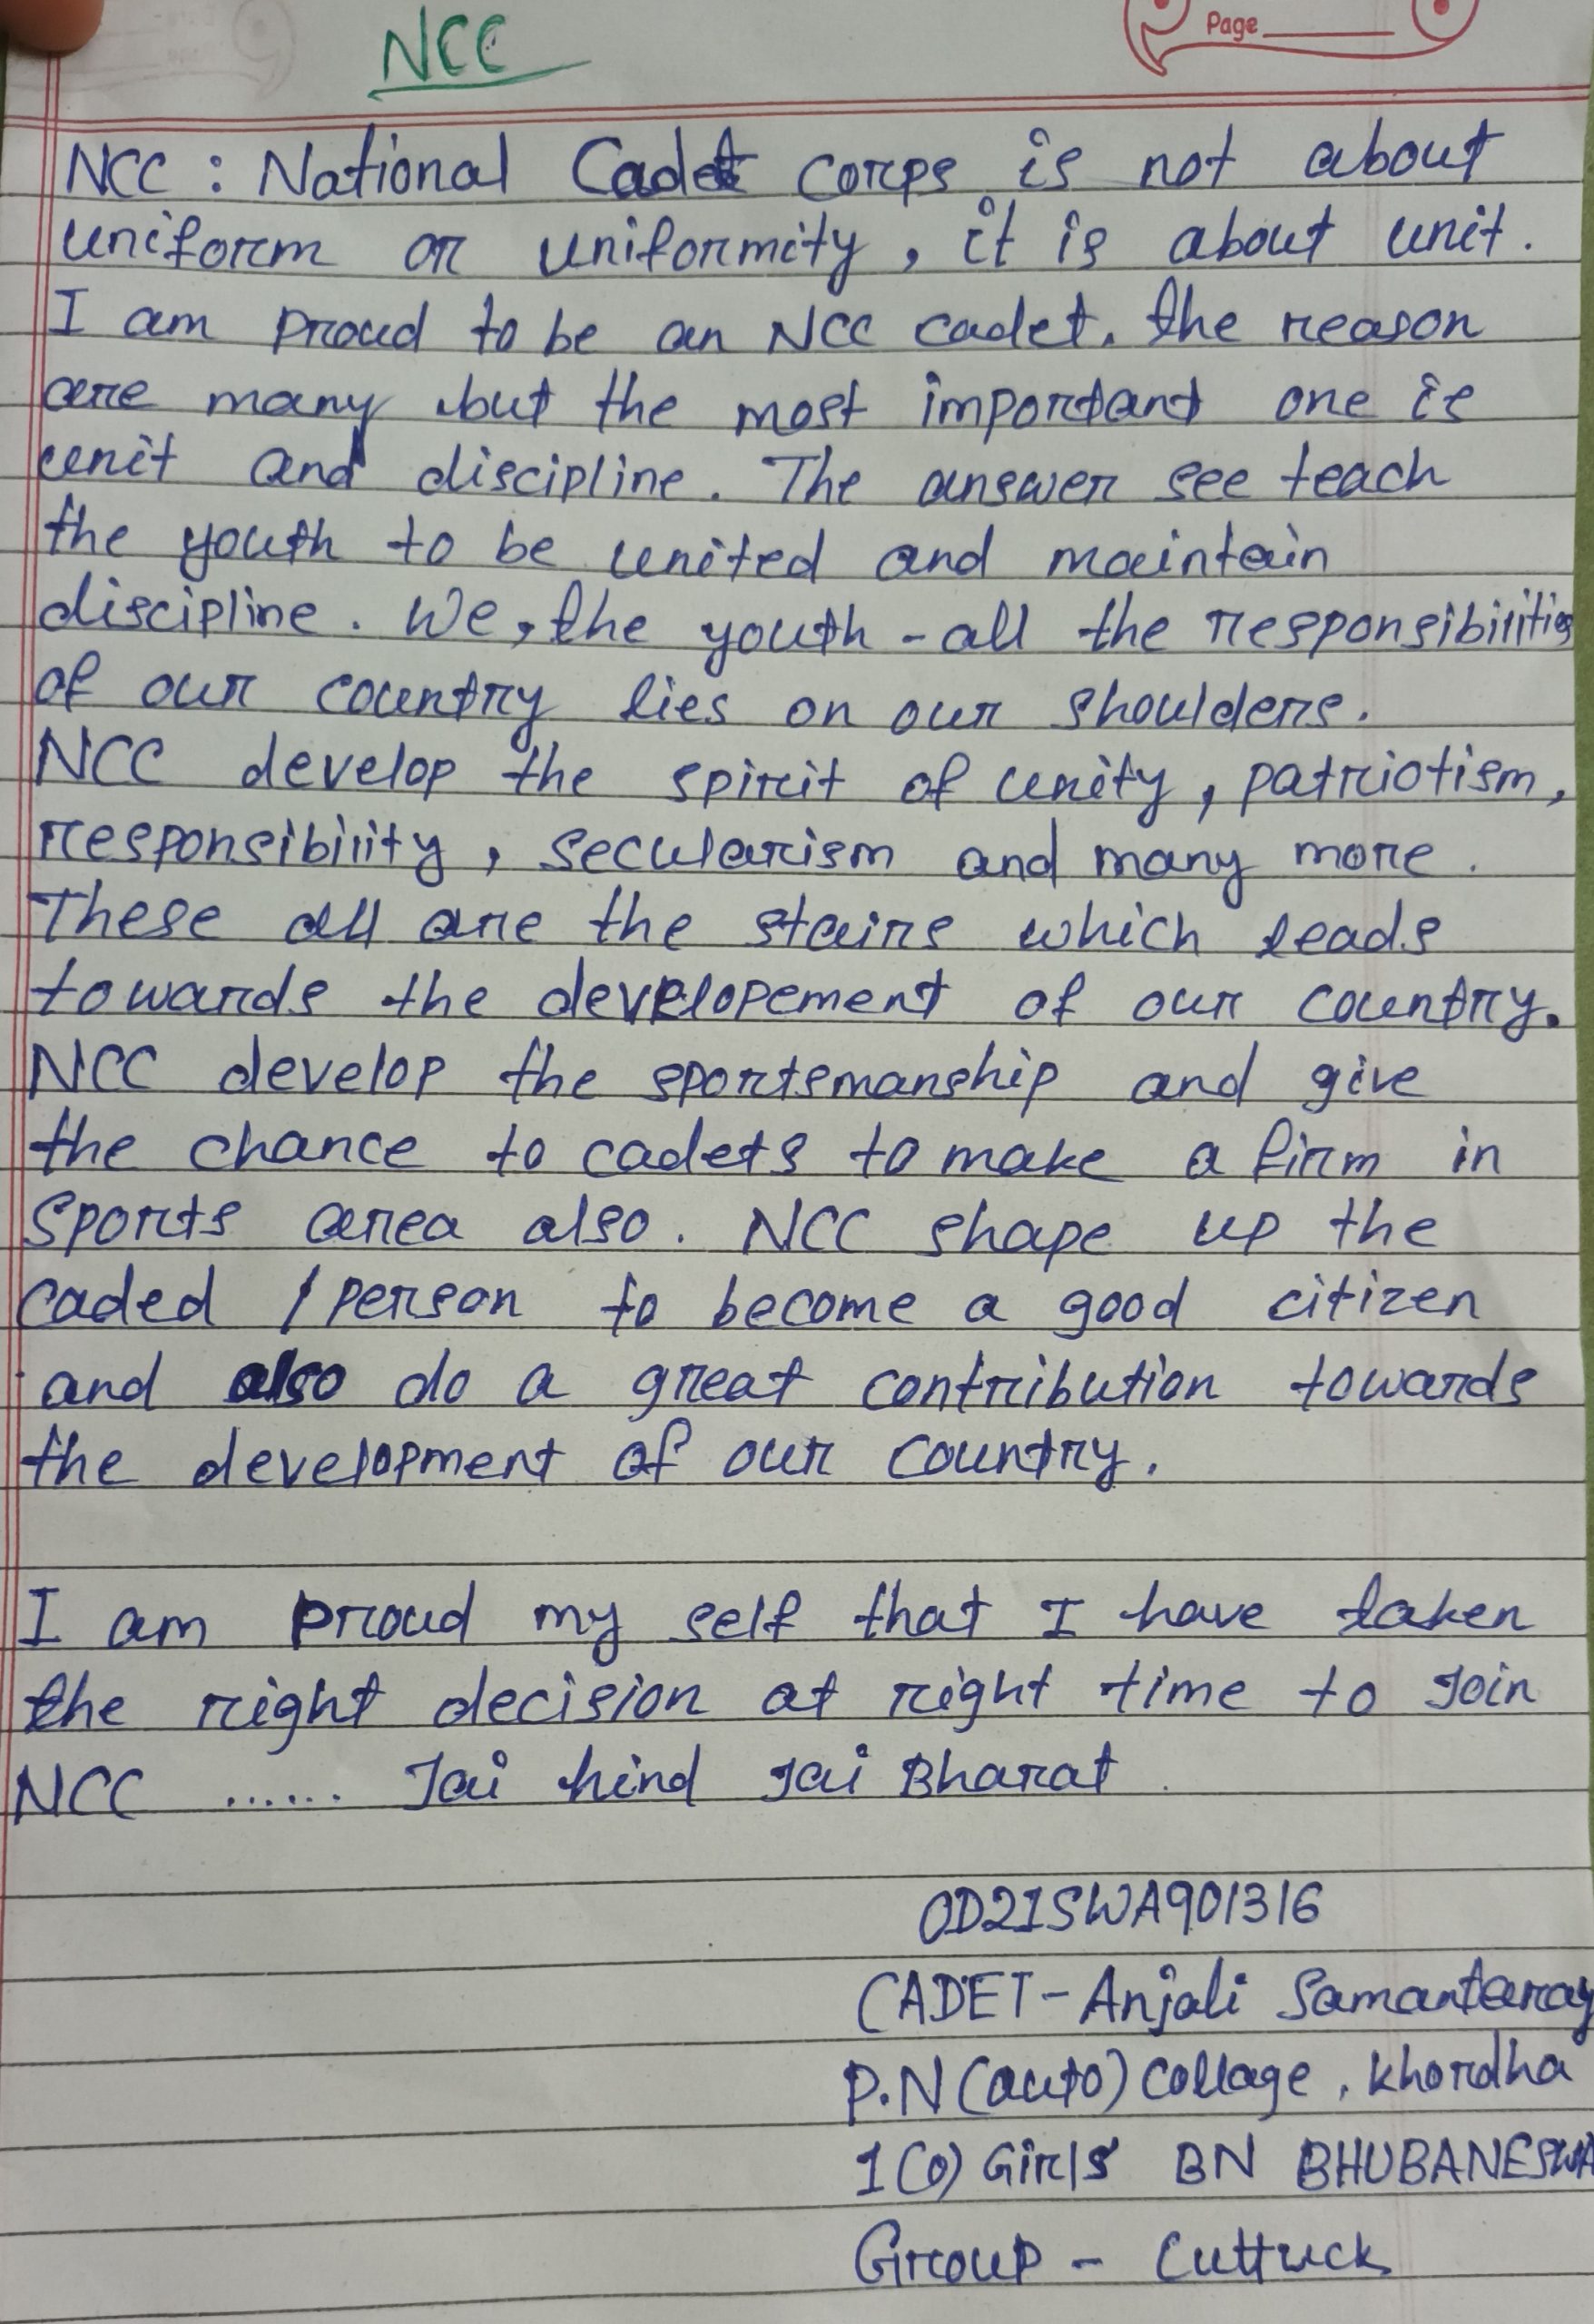 Page
NCC
NCC : National Cadet corps is not about
uniform or uniformity, it is about unit.
I am proud to be an NCC cadet. the reason
are many but the most important one is
unit and discipline. The answer see teach
the youth to be united and maintain
discipline. We, the youth - all the responsibilities
of our country lies on our shoulders.
NCC develop the spirit of unity, patriotism,
responsibility, secularism and many more.
These all are the stairs which leads
towards the developement of our country.
NCC develop the sportsmanship and give
the chance to cadets to make a firm in
Sports area also. NCC shape up the
caded / person to become a good citizen
and also do a great contribution towards
the development of our country.
I am proud my self that I have taken
the right decision at right time to Join
NCC ...... Jai hind Jai Bharat.
OD21SWA901316
CADET - Anjali Samantaray
P.N (auto) Collage, Khordha
1 (O) Girls' BN BHUBANESWA
Group - Cuttuck